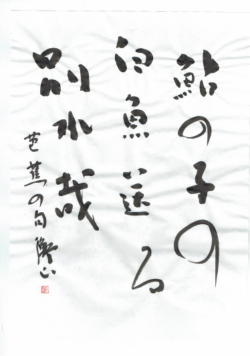 鮎の子の
白魚送る
別れ哉
芭蕉の句